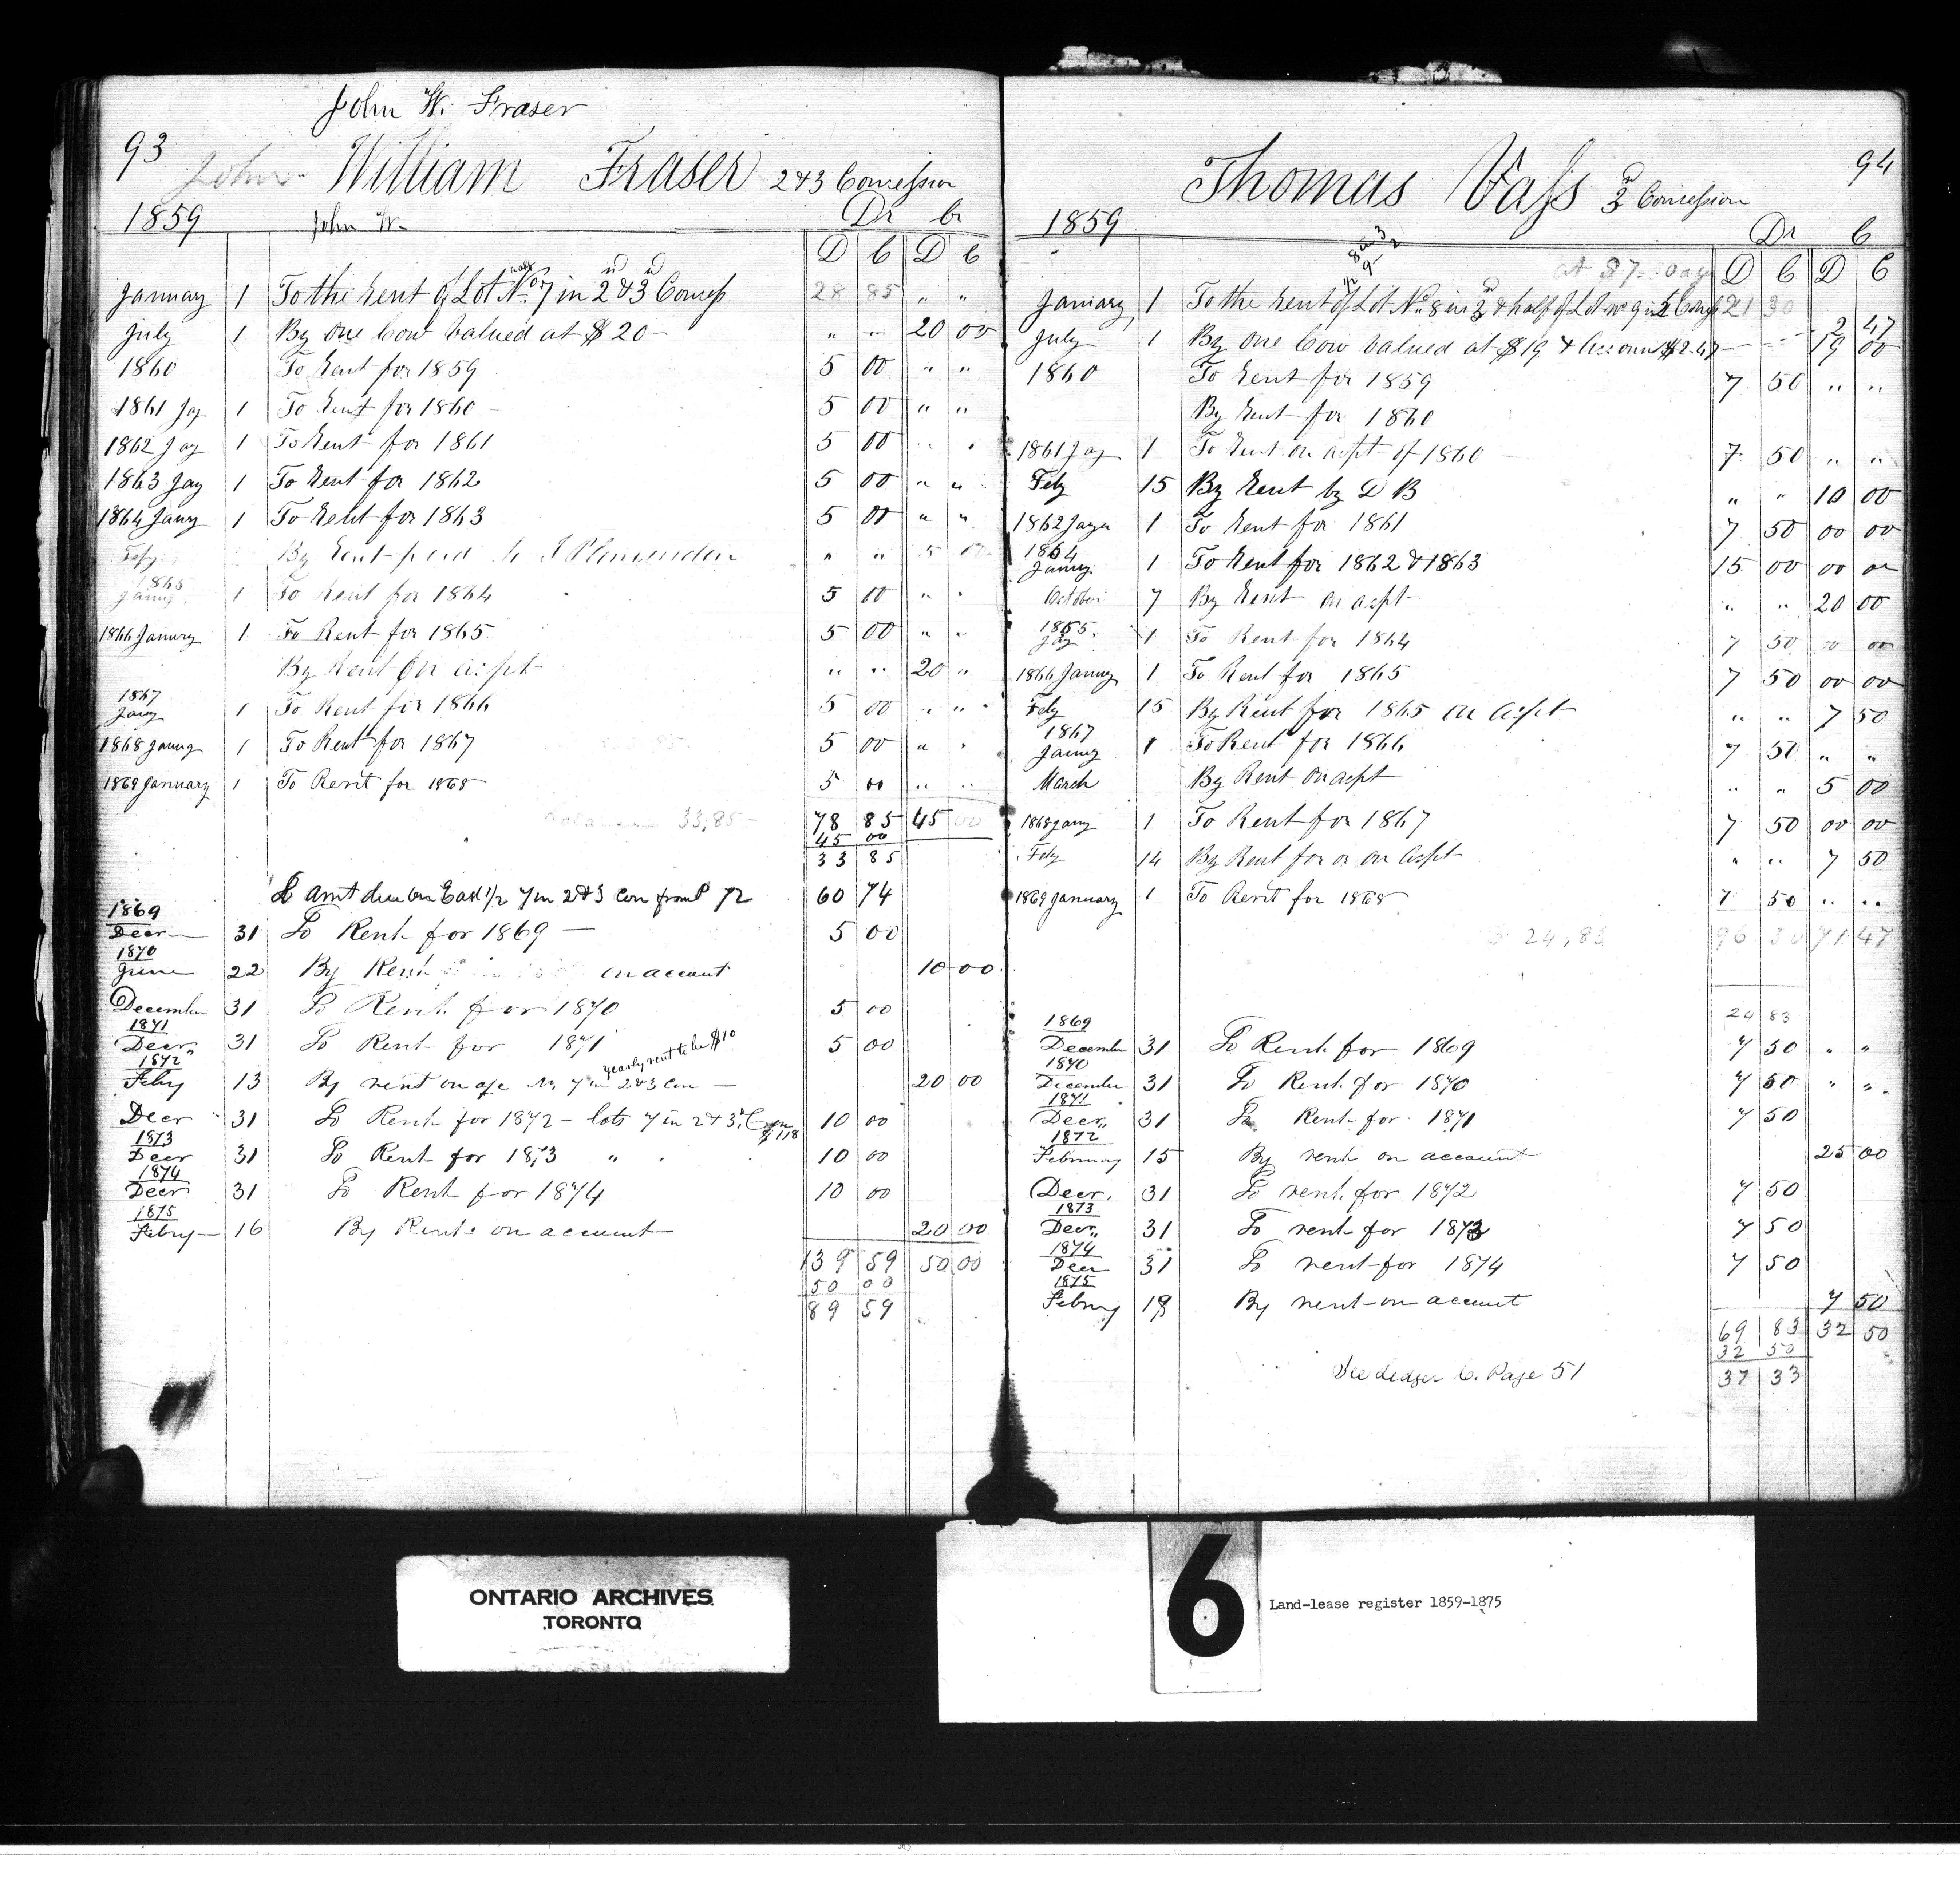 John W. Fraser
93
John William Fraser 2 & 3 Concession
1859 John W. Dr Cr
D C D C
January 1 To the Rent of Lot half No. 7 in 2nd & 3rd Concess 28 85 " "
July 1 By one Cow Valued at $20 " " 20 00
1860 To Rent for 1859 5 00 " "
1861 Jay 1 To Rent for 1860 5 00 " "
1862 Jay 1 To Rent for 1861 5 00 " "
1863 Jay 1 To Rent for 1862 5 00 " "
1864 Jany 1 To Rent for 1863 5 00 " "
Feby By Rent paid to " " 5 00
1865 Jany 1 To Rent for 1864 5 00 " "
1866 January 1 To Rent for 1865 5 00 " "
By Rent On acpt " " 20 "
1867 Jany 1 To Rent for 1866 5 00 " "
1868 Janug 1 To Rent for 1867 5 00 " "
1869 January 1 To Rent for 1868 5 00 " "
balance 33,85 78 85 45 00
45 00
33 85
To Amt due on East 1/2 7 in 2 & 3 Con from P 72 60 74
1869
Decr 31 To Rent for 1869 5 00
1870
June 22 By Rent on account 10 00
December 31 To Rent for 1870 5 00
1871
Decr 31 To Rent for 1871 5 00
1872 yearly rent to be $10
Feby 13 By rent on a/c No. 7 in 2 & 3 Con 20 00
Decr 31 To Rent for 1872 - lots 7 in 2 & 3 Con 10 00
1873
Decr 31 To Rent for 1873 " " 10 00
1874
Decr 31 To Rent for 1874 10 00
1875
Febry 16 By Rent on account 20 00
139 59 50 00
50 00
89 59
94
Thomas Vass 3 Concession
1859 Dr C
at $7.50 ay D C D C
January 1 To the Rent of Lot No. 8 in 3 & half of Lot No 9 in 2 Conc 21 30
2 47
July 1 By One Cow Valued at $19 & Account $2.47 19 00
1860 To Rent for 1859 7 50 " "
By Rent for 1860
1861 Jay 1 To Rent on acpt of 1860 7 50 " "
Feby 15 By Rent by D B " " 10 00
1862 Jaya 1 To Rent for 1861 7 50 00 00
1864
Janny 1 To Rent for 1862 & 1863 15 00 00 00
October 7 By Rent on acpt " " 20 00
1865
Jay 1 To Rent for 1864 7 50 00 00
1866 Janny 1 To Rent for 1865 7 50 00 00
Feby 15 By Rent for 1865 on acpt " " 7 50
1867
Janny 1 To Rent for 1866 7 50 " "
March By Rent On acpt " " 5 00
1868 Jany 1 To Rent for 1867 7 50 00 00
Feby 14 By Rent for or on acpt " " 7 50
1869 January 1 To Rent for 1868 7 50 " "
24,83 96 30 71 47
24 83
1869
December 31 To Rent for 1869 7 50 " "
1870
December 31 To Rent for 1870 7 50 " "
1871
Decr 31 To Rent for 1871 7 50
1872
February 15 By rent on account 25 00
Decr. 31 To rent for 1872 7 50
1873
Decr 31 To rent for 1873 7 50
1874
Decr 31 To rent for 1874 7 50
1875
Febury 18 By rent on account 7 50
69 83 32 50
32 50
37 33
See Ledger C. Page 51
ONTARIO ARCHIVES
TORONTO
6
Land-lease register 1859-1875